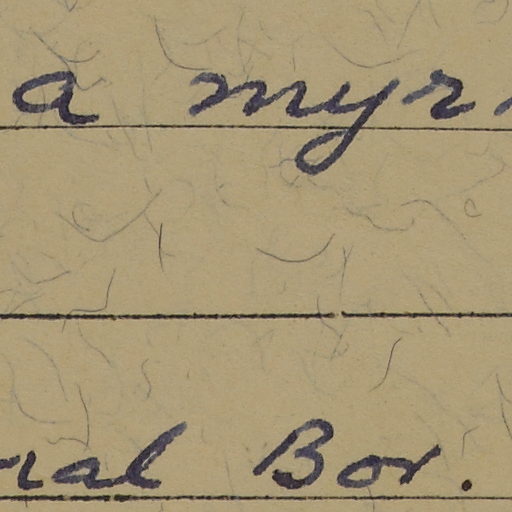 a myr
ral Bor.